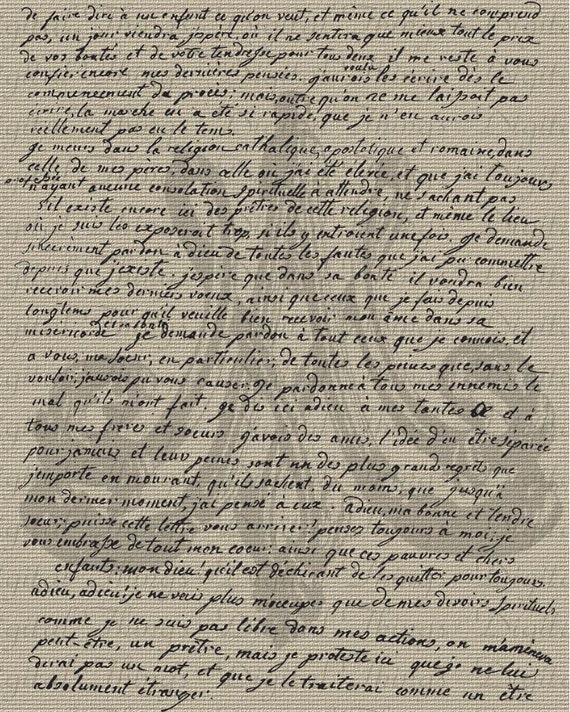 de faire dire à un enfant ce qu'on veut, et même ce qu'il ne comprend
pas, un jour viendra j'espère, où il ne sentira que mieux tout le prix
de vos bontés et de votre tendresse pour tous deux il me reste à vous
confier encore mes dernières pensées. j'aurois voulu les écrire dès le
commencement du procès; mais, outre qu'on ne me laissoit pas
écrire, la marche en a été si rapide, que je n'en aurois
réellement pas eu le tems.
je meurs dans la religion catholique, apostolique et romaine, dans
celle de mes pères, dans celle où j'ai été élevée, et que j'ai toujours
professée n'ayant aucune consolation spirituelle à attendre, ne sachant pas
s'il existe encore ici des prêtres de cette religion, et même le lieu
où je suis les exposeroit trop, s'ils y entroient une fois. je demande
sincèrement pardon à dieu de toutes les fautes que j'ai pu commettre
depuis que j'existe. j'espère que dans sa bonté il voudra bien
recevoir mes derniers voeux, ainsi que ceux que je fais depuis
longtems pour qu'il veuille bien recevoir mon âme dans sa
miséricorde et sa bonté. je demande pardon à tout ceux que je connois, et
a vous, ma soeur, en particulier, de toutes les peines que, sans le
vouloir, j'aurois pu vous causer. je pardonne à tous mes ennemis le
mal qu'ils m'ont fait. je dis ici adieu à mes tantes et à
tous mes frères et soeurs j'avois des amis, l'idée d'en être séparée
pour jamais et leurs peines sont un des plus grands regrets que
j'emporte en mourant, qu'ils sachent, du moins, que jusqu'à
mon dernier moment, j'ai pensé à eux. adieu, ma bonne et tendre
soeur: puisse cette lettre vous arriver! pensez toujours à moi, je
vous embrasse de tout mon coeur: ainsi que ces pauvres et chers
enfants: mon dieu! qu'il est déchirant de les quitter pour toujours.
adieu, adieu! je ne vais plus m'occuper que de mes devoirs spirituels
comme je ne suis pas libre dans mes actions, on m'amènera
peut-être, un prêtre, mais je proteste ici que je ne lui
dirai pas un mot, et que je le traiterai comme un être
absolument étranger.